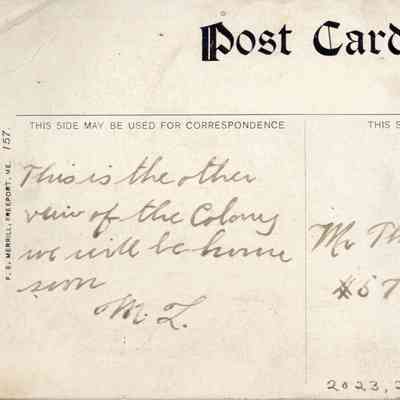 Post Card
THIS SIDE MAY BE USED FOR CORRESPONDENCE
THIS S
F. E. MERRILL, FREEPORT, ME.
157.
This is the other
veiw of the Colony
we will be home
soon
M. L.
Mr Th
#57
2023,2